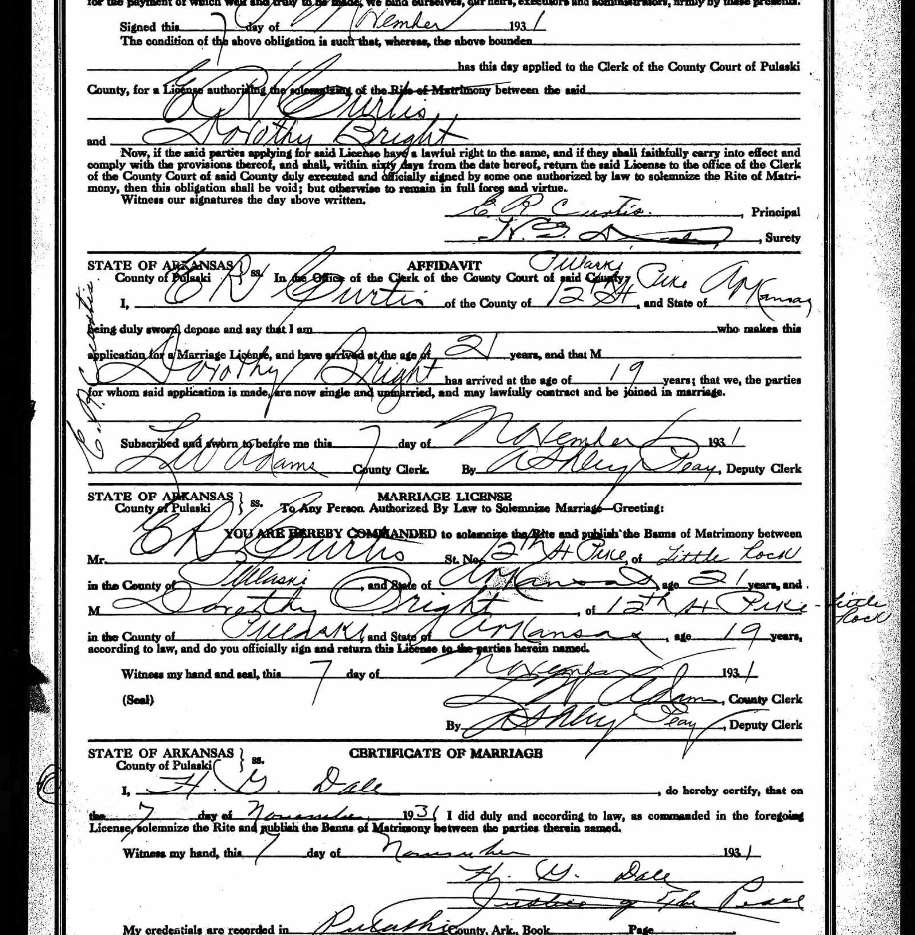 for the payment of which well and truly to be made, we bind ourselves, our heirs, executors and administrators, firmly by these presents.
Signed this 7 day of November 1931
The condition of the above obligation is such that, whereas, the above bounden
has this day applied to the Clerk of the County Court of Pulaski
County, for a License authorizing the solemnizing of the Rite of Matrimony between the said
E R Curtis
and Dorothy Bright
Now, if the said parties applying for said License have a lawful right to the same, and if they shall faithfully carry into effect and
comply with the provisions thereof, and shall, within sixty days from the date hereof, return the said License to the office of the Clerk
of the County Court of said County duly executed and officially signed by some one authorized by law to solemnize the Rite of Matri-
mony, then this obligation shall be void; but otherwise to remain in full force and virtue.
Witness our signatures the day above written.
E R Curtis. , Principal
, Surety
STATE OF ARKANSAS } ss. AFFIDAVIT
County of Pulaski In the Office of the Clerk of the County Court of said County. Pulaski
I, E R Curtis of the County of 12 St Pike , and State of Arkansas
being duly sworn, depose and say that I am who makes this
application for a Marriage License, and have arrived at the age of 21 years, and that M
Dorothy Bright has arrived at the age of 19 years; that we, the parties
for whom said application is made, are now single and unmarried, and may lawfully contract and be joined in marriage.
E. R. Curtis
Subscribed and sworn to before me this 7 day of November 1931
L W Adams County Clerk. By Ashley Peay , Deputy Clerk
STATE OF ARKANSAS } ss. MARRIAGE LICENSE
County of Pulaski To Any Person Authorized By Law to Solemnize Marriage—Greeting:
YOU ARE HEREBY COMMANDED to solemnize the Rite and publish the Banns of Matrimony between
Mr. E R Curtis St. No. 12th St Pike of Little Rock
in the County of Pulaski , and State of Arkansas , age 21 years, and
M Dorothy Bright , of 12th St Pike - Little Rock
in the County of Pulaski , and State of Arkansas , age 19 years,
according to law, and do you officially sign and return this License to the parties herein named.
Witness my hand and seal, this 7 day of November 1931
(Seal) L W Adams , County Clerk
By Ashley Peay , Deputy Clerk
STATE OF ARKANSAS } ss. CERTIFICATE OF MARRIAGE
County of Pulaski
I, H. G. Dale , do hereby certify, that on
the 7 day of November 1931 I did duly and according to law, as commanded in the foregoing
License, solemnize the Rite and publish the Banns of Matrimony between the parties therein named.
Witness my hand, this 7 day of November 1931
H. G. Dale
Justice of The Peace
My credentials are recorded in Pulaski County, Ark., Book Page